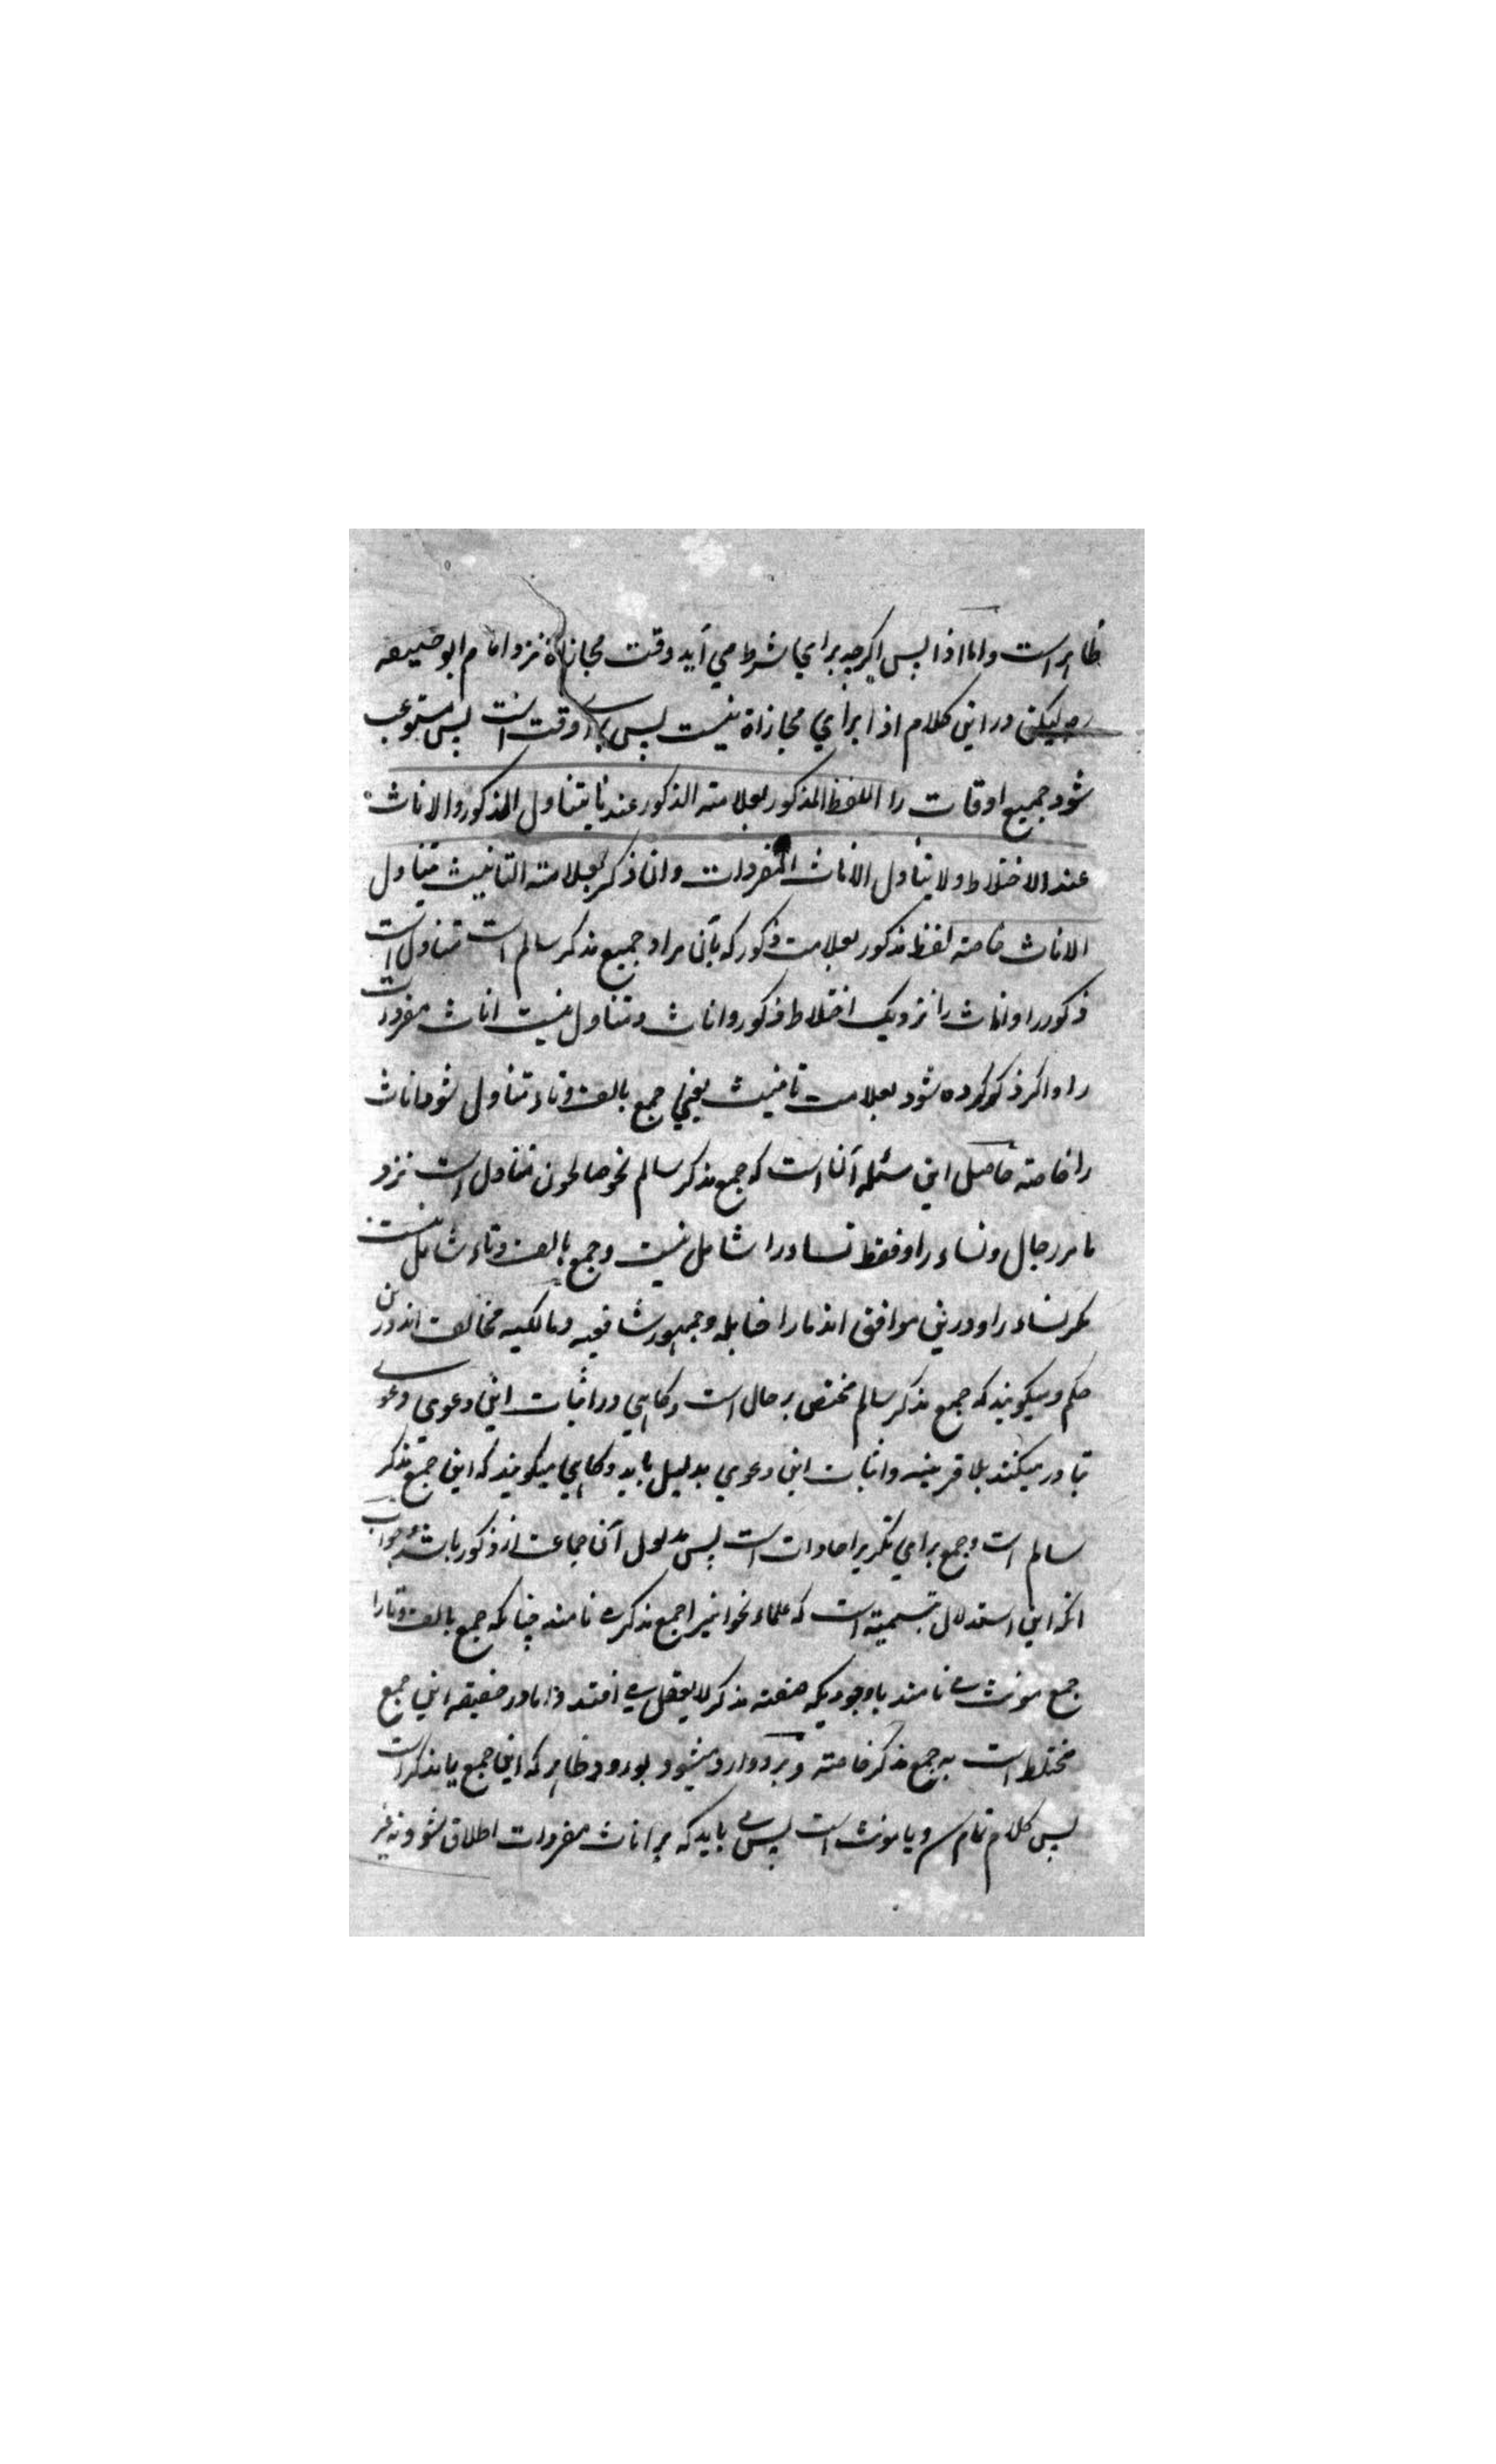 ظاهر است و اما اذا پس اگرچه برای شرط می آید وقت مجازاة نزد امام ابو حنیفه
لیکن در این کلام اذا برای مجازاة نیست پس برای وقت است پس مستوعب
شود جمیع اوقات را اللفظ المذکور بعلامته الذکور عندنا یتناول الذکور والاناث
عند الاختلاط ولا یتناول الاناث المفردات وان ذکر بعلامته التانیث یتناول
الاناث خاصته لفظ مذکور بعلامت ذکور که بآن مراد جمیع مذکر سالم است متناول است
ذکور را و اناث را نزدیک اختلاط ذکور و اناث و متناول نیست اناث مفردات
را و اگر ذکر کرده شود بعلامت تانیث یعنی جمع بالف و تاء متناول شود اناث
را خاصته حاصل این مسئله آن است که جمع مذکر سالم نحو صالحون متناول است نزد
ما مر رجال و نساء را و فقط نساء را شامل نیست و جمع بالف و تاء شامل نیست
مگر نساء را و درین موافق اند ما را حنابله و جمهور شافعیه و مالکیه مخالف اند درین
حکم و میگویند که جمع مذکر سالم مختص برجال است و گاهی در اثبات این دعوی دعوی
تبادر میکنند بلا قرینه و اثبات این دعوی بدلیل باید و گاهی میگویند که این جمع مذکر
سالم است و جمع برای تکریر احاد است پس مدلول آن جماعت از ذکور باشد و جواب
انکه این استدلال بتسمیته است که علماء نحو اینرا جمع مذکر نامند چنانکه جمع بالف و تا را
جمع مونث می نامند باوجودیکه صفته مذکر لایعقل می افتد و اما در حقیقه این جمع
مختلط است به جمع مذکر خاصته و بر دو وارد میشود بورود ظاهر که این جمع یا مذکر است
پس کلام تمام و یا مونث است پس می باید که بر اناث مفردات اطلاق شود